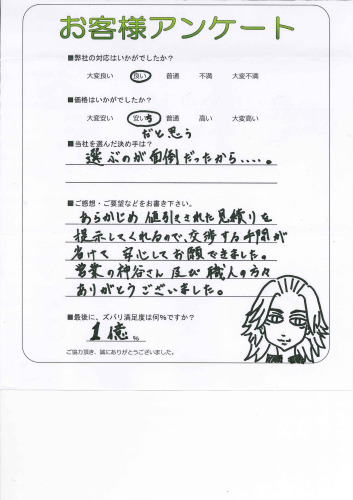 お客様アンケート
■弊社の対応はいかがでしたか？
大変良い 良い 普通 不満 大変不満
■価格はいかがでしたか？
大変安い 安い 普通 高い 大変高い
だと思う
■当社を選んだ決め手は？
選ぶのが面倒だったから・・・・。
■ご感想・ご要望などをお書き下さい。
あらかじめ値引きされた見積りを
提示してくれるので、交渉する手間が
省けて安心してお願できました。
営業の神谷さん及び職人の方々
ありがとうございました。
■最後に、ズバリ満足度は何%ですか？
1億%
ご協力頂き、誠にありがとうございました。